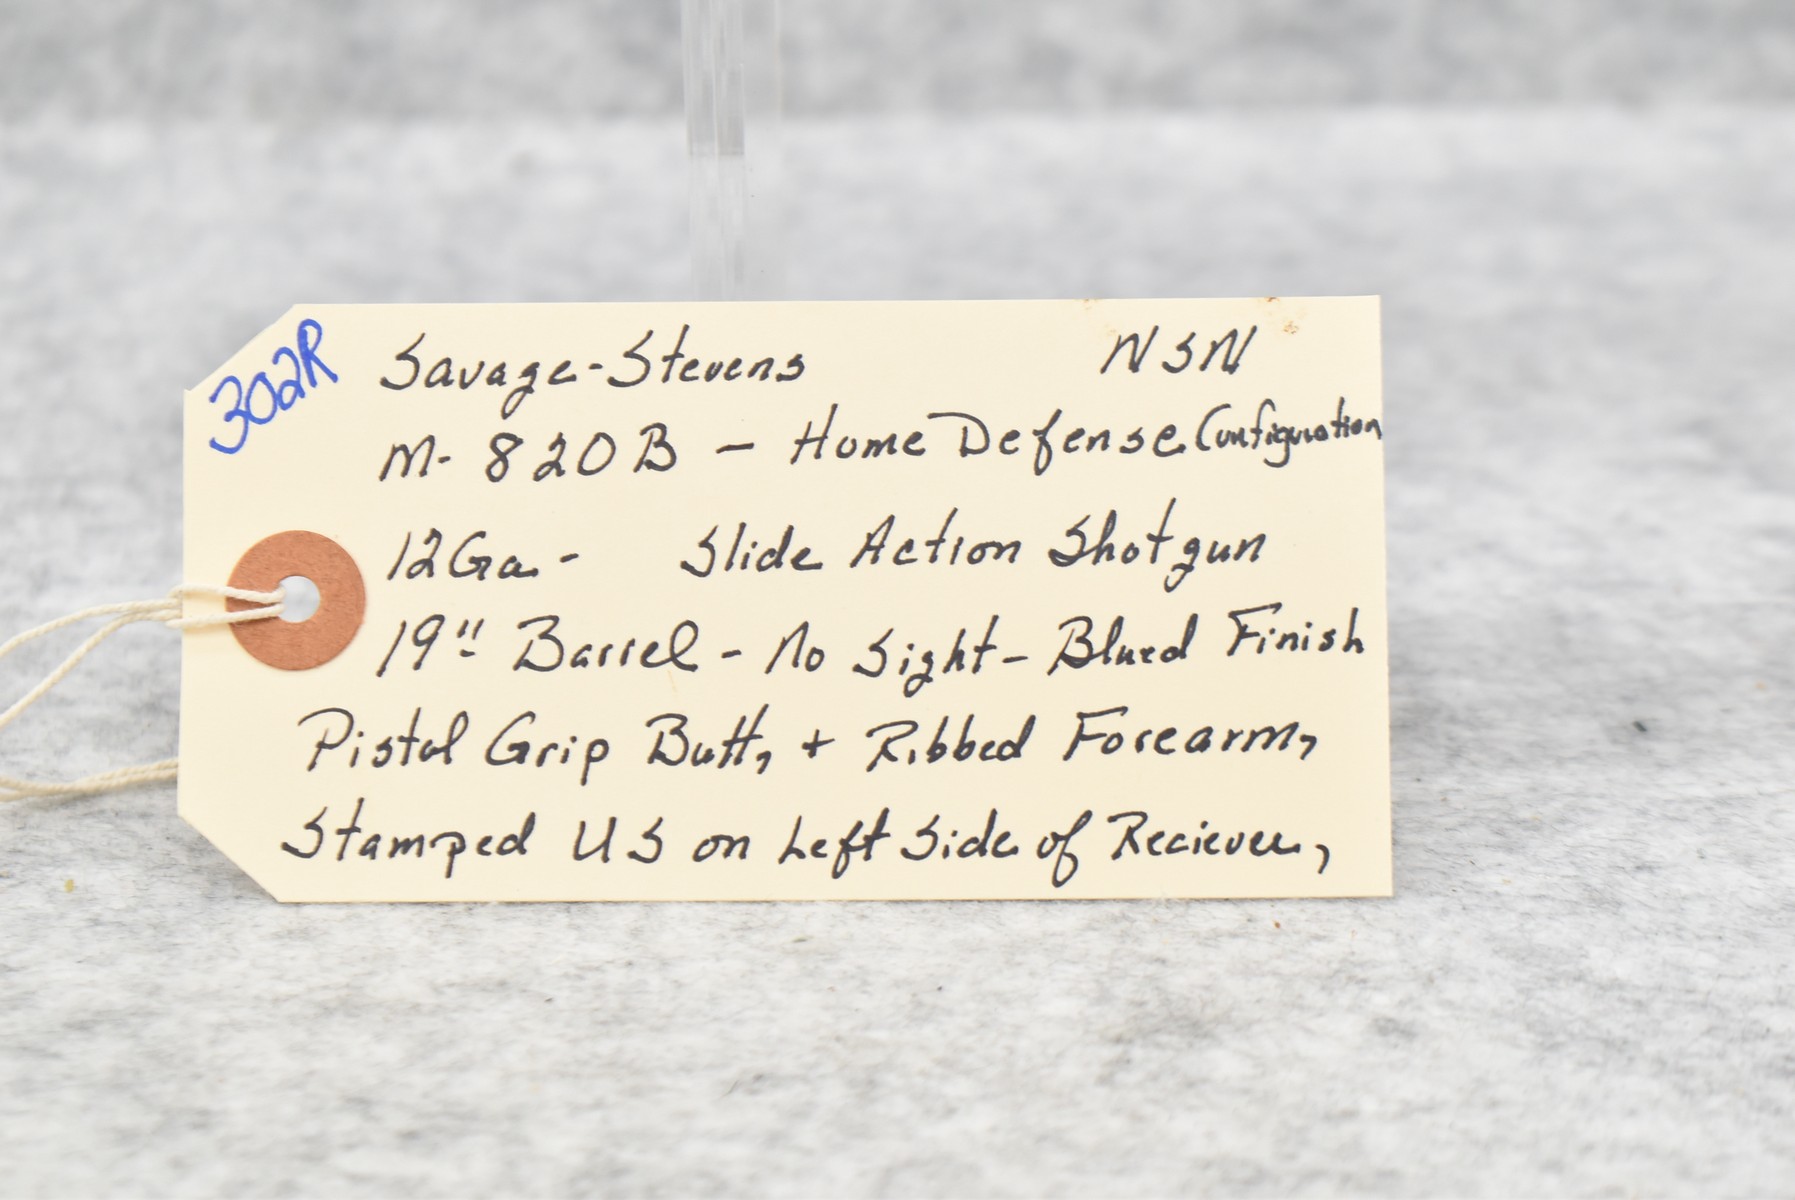 302R
Savage-Stevens NSN
M-820B - Home Defense Configuration
12Ga- Slide Action Shotgun
19" Barrel - No Sight - Blued Finish
Pistol Grip Butt, + Ribbed Forearm,
Stamped US on Left Side of Reciever,